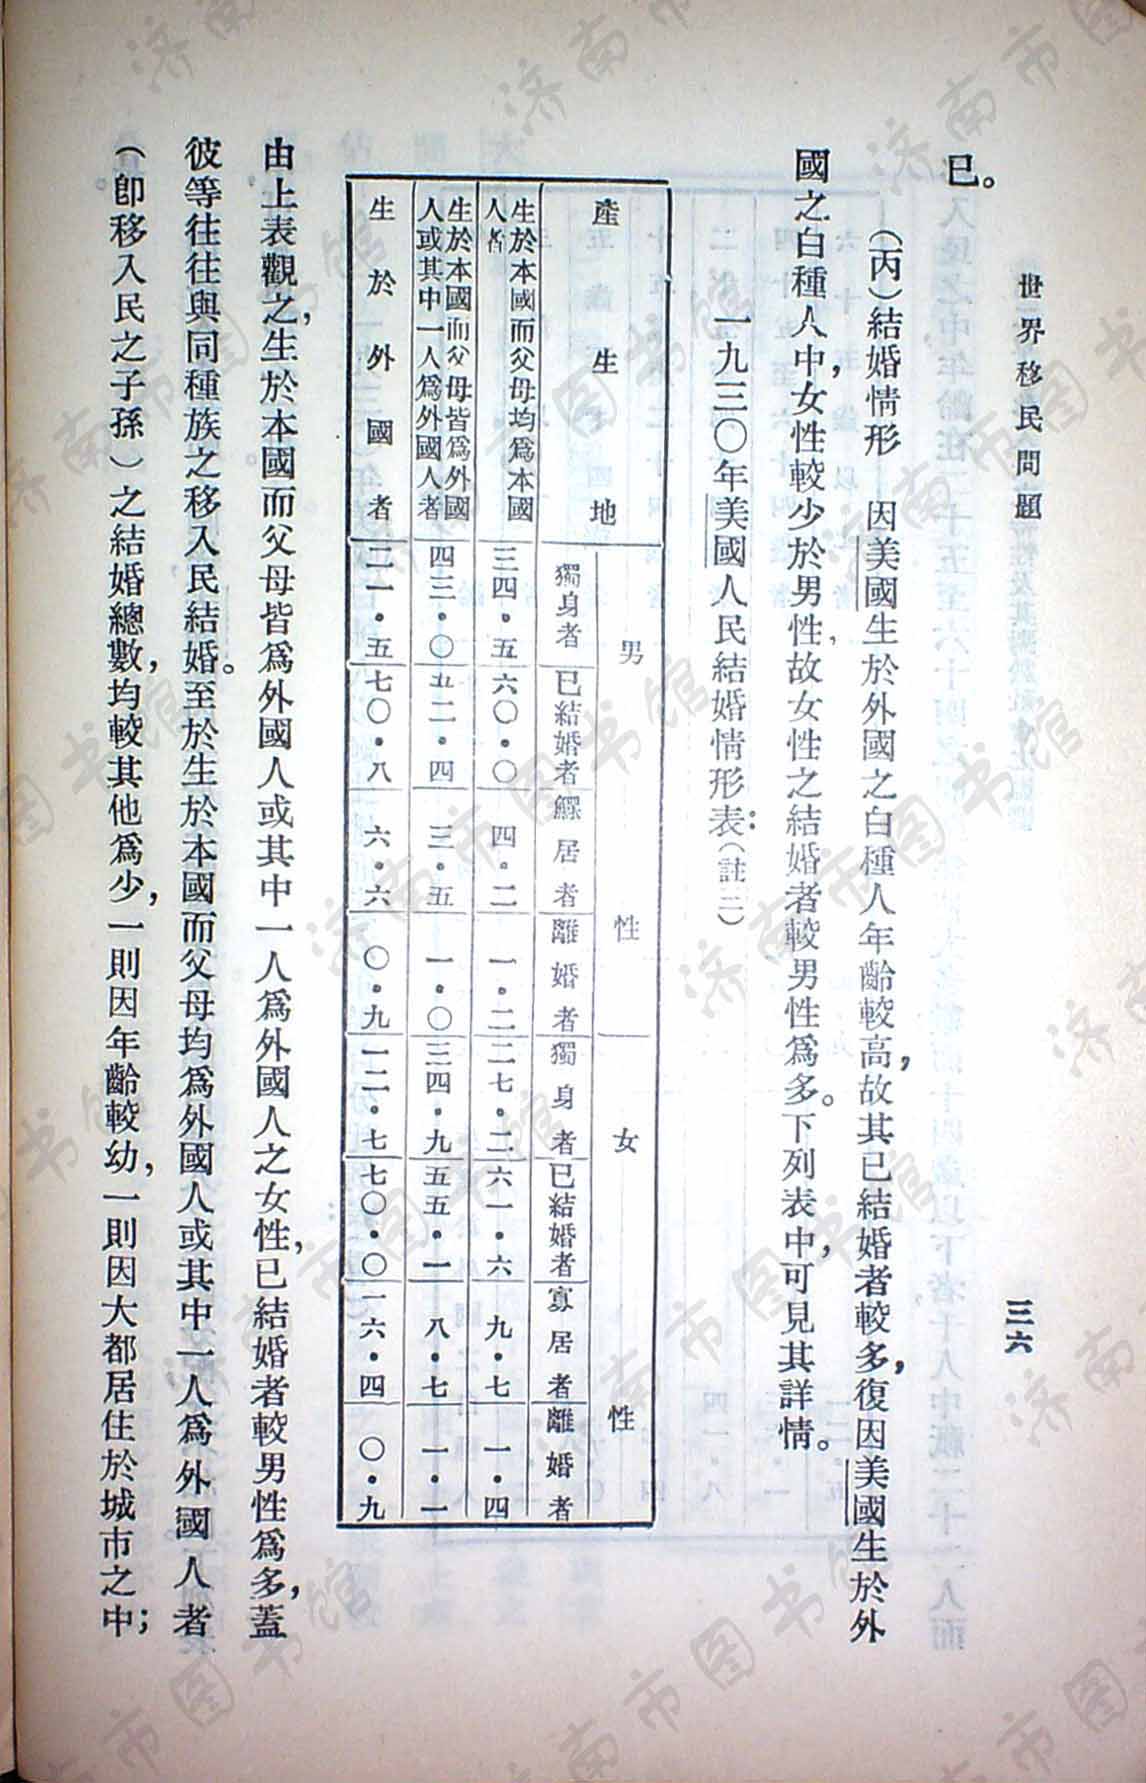 世界移民問題
三六
已。
（丙）結婚情形　因美國生於外國之白種人年齡較高，故其已結婚者較多，復因美國生於外
國之白種人中，女性較少於男性，故女性之結婚者較男性爲多。下列表中，可見其詳情。
一九三〇年美國人民結婚情形表：（註二）
產生地
男性
女性
獨身者
已結婚者
鰥居者
離婚者
獨身者
已結婚者
寡居者
離婚者
生於本國而父母均爲本國人者
三四・五
六〇・〇
四・二
一・二
二七・二
六一・六
九・七
一・四
生於本國而父母皆爲外國人或其中一人爲外國人者
四三・〇
五二・四
三・五
一・〇
三四・九
五五・一
八・七
一・一
生於外國者
二一・五
七〇・八
六・六
〇・九
一二・七
七〇・〇
一六・四
〇・九
由上表觀之，生於本國而父母皆爲外國人或其中一人爲外國人之女性，已結婚者較男性爲多，蓋
彼等往往與同種族之移入民結婚。至於生於本國而父母均爲外國人或其中一人爲外國人者
（卽移入民之子孫）之結婚總數，均較其他爲少，一則因年齡較幼，一則因大都居住於城市之中；
济南市图书馆